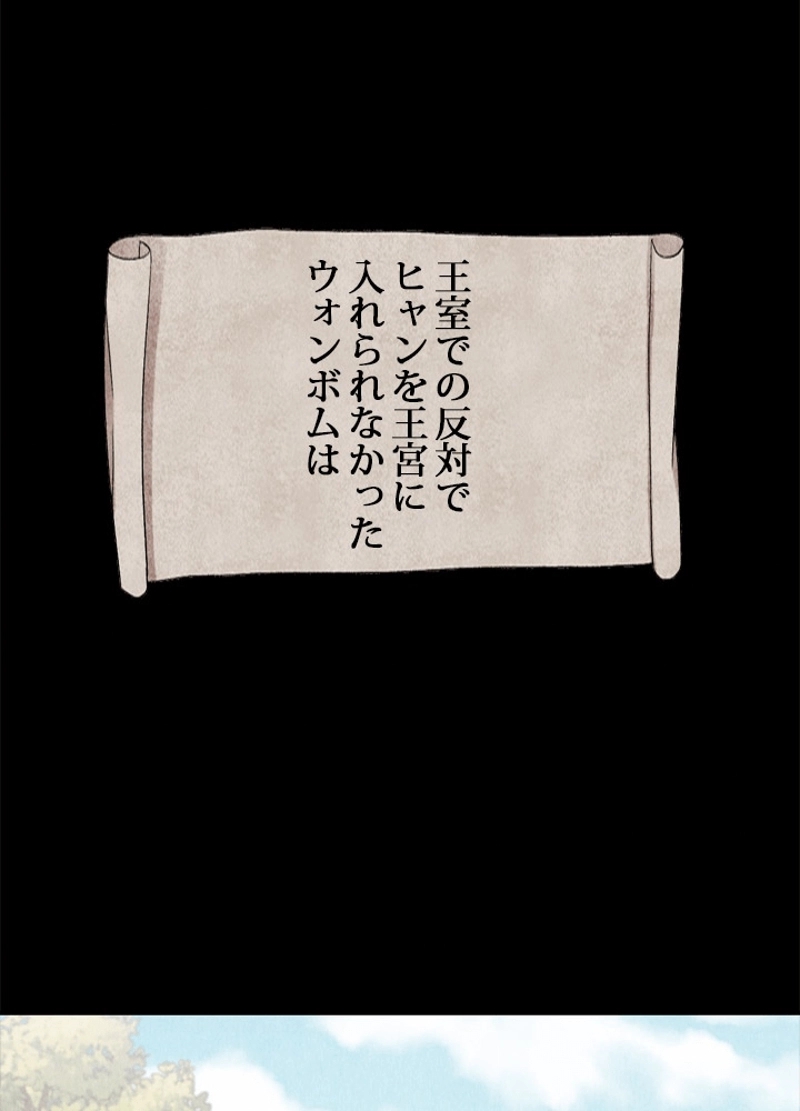 王室での反対で
ヒャンを王宮に
入れられなかった
ウォンボムは